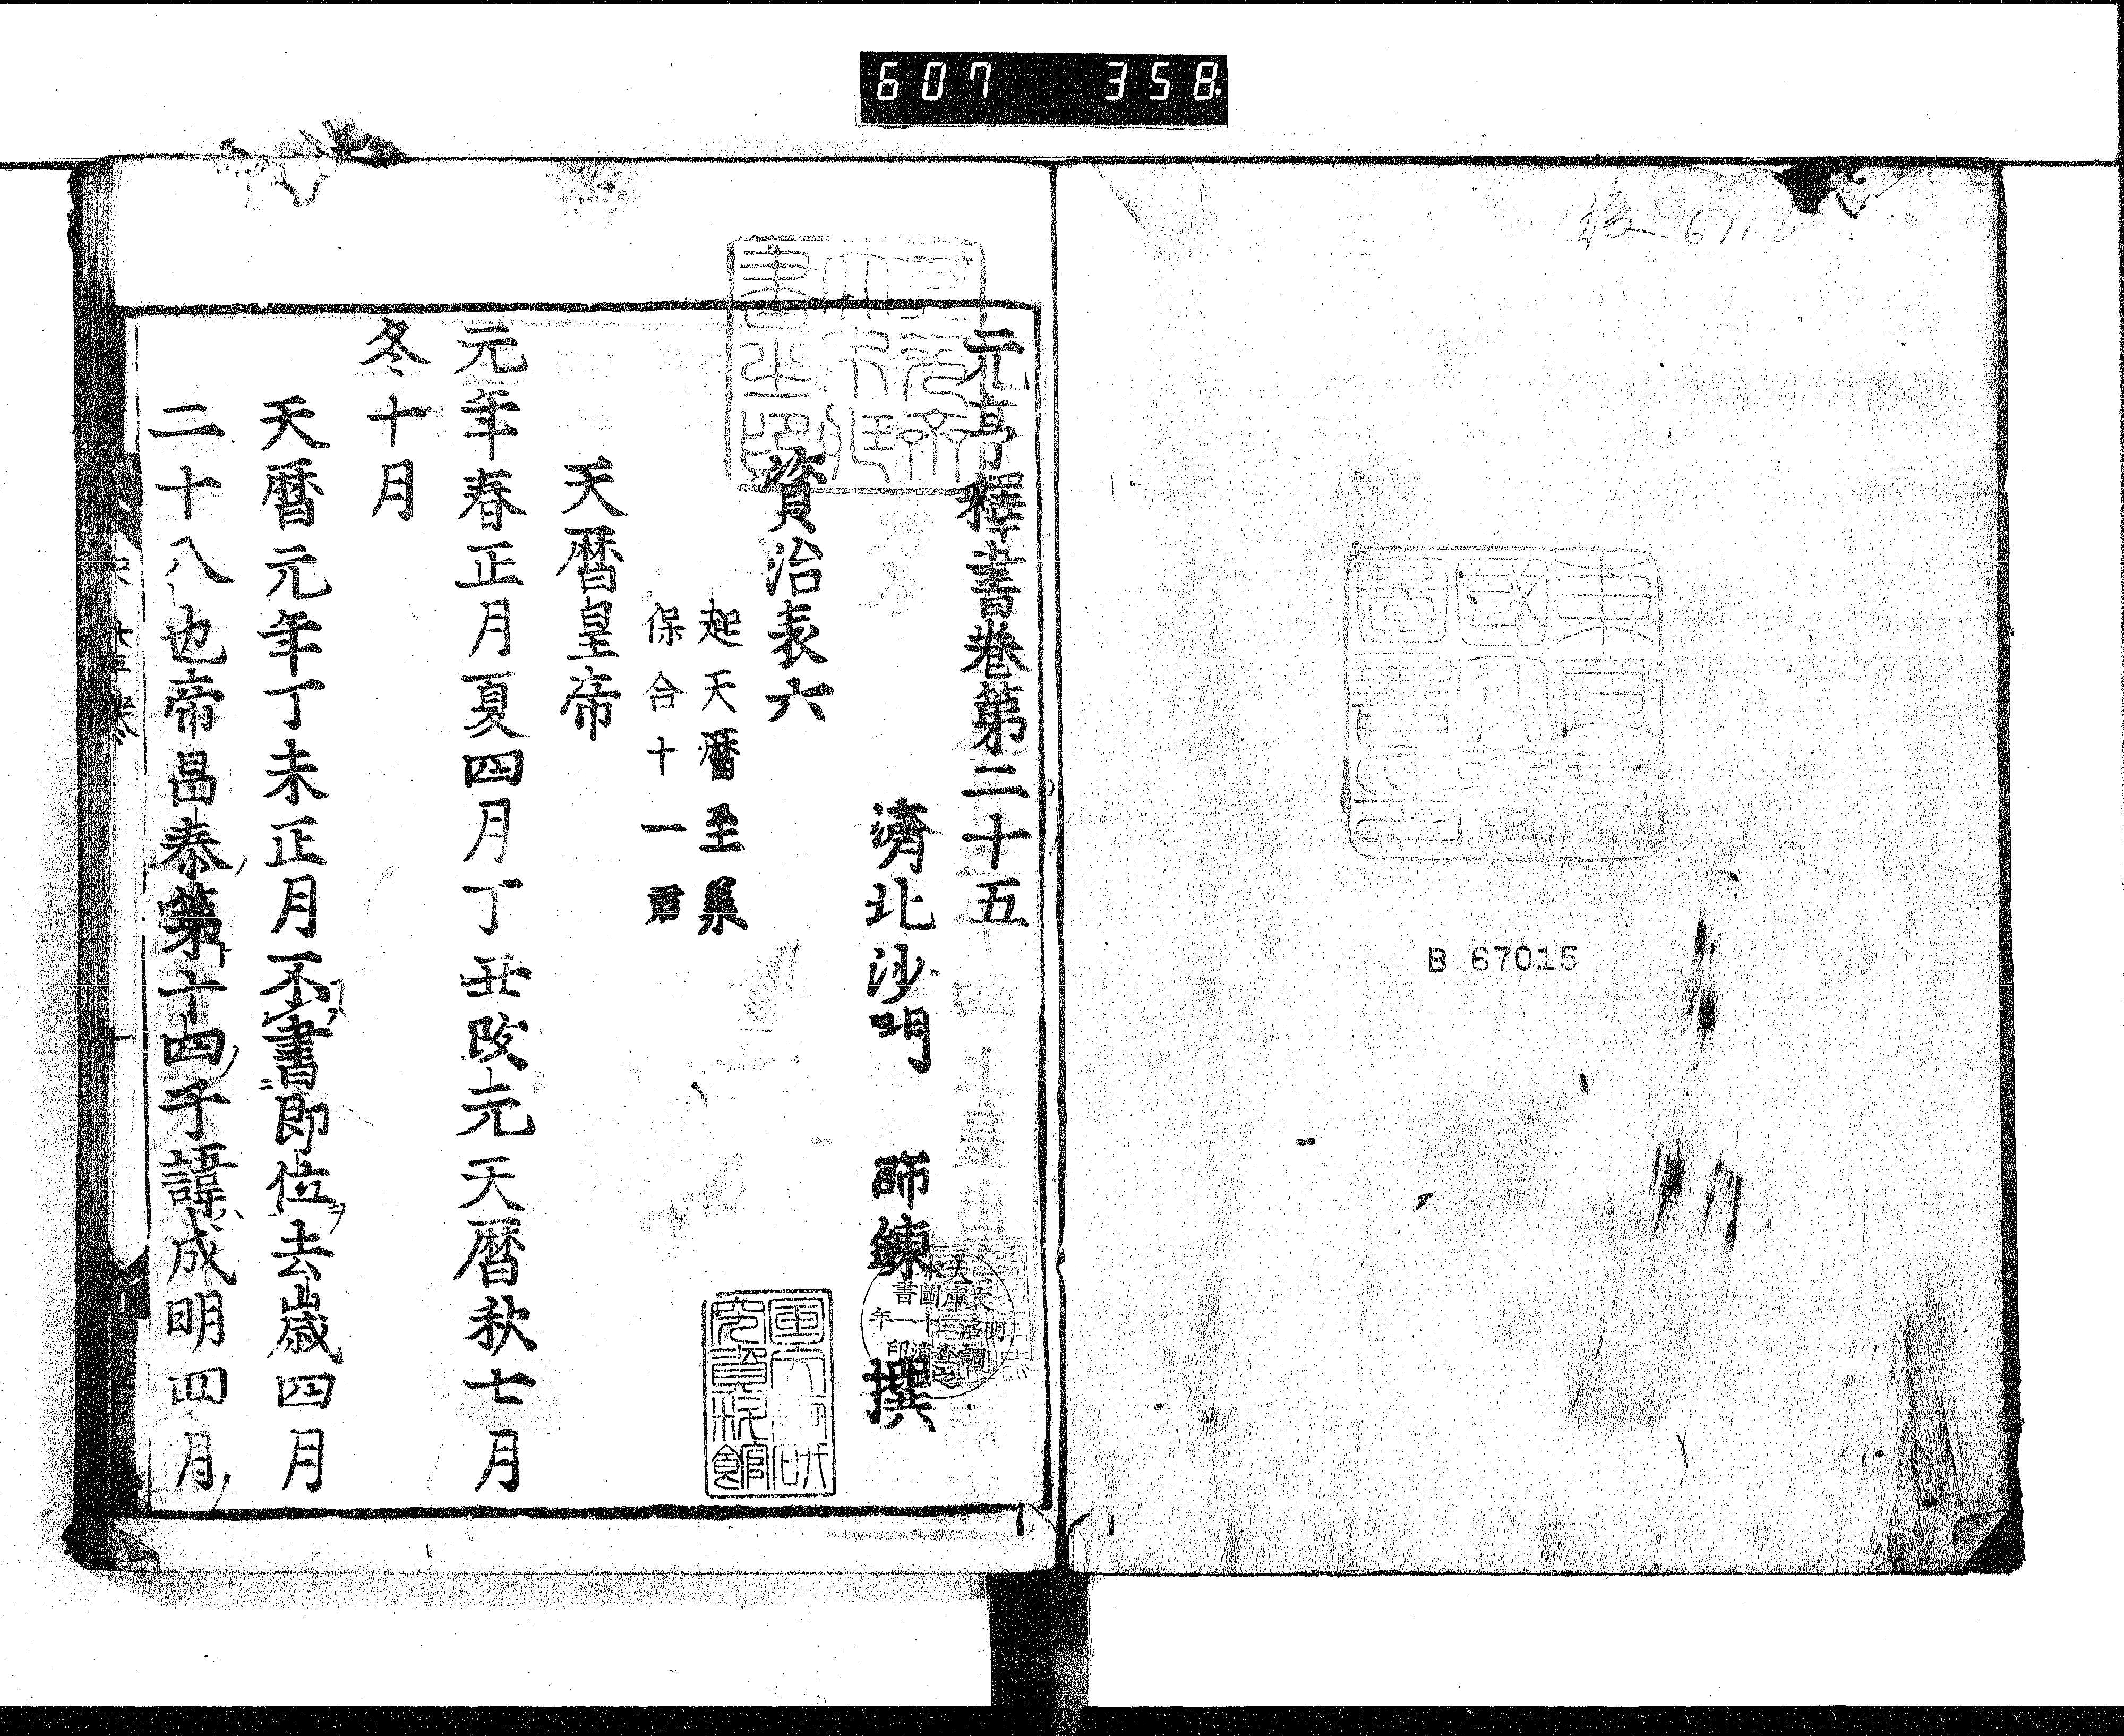 607 358
B 67015
元亨釋書卷第二十五
濟北沙門 師練 撰
資治表六
起天曆至堀
保合十一君
天曆皇帝
元年春正月夏四月丁丑改元天曆秋七月
冬十月
天曆元年丁未正月不書即位去歲四月
二十八也帝昌泰第十四子諱成明四月